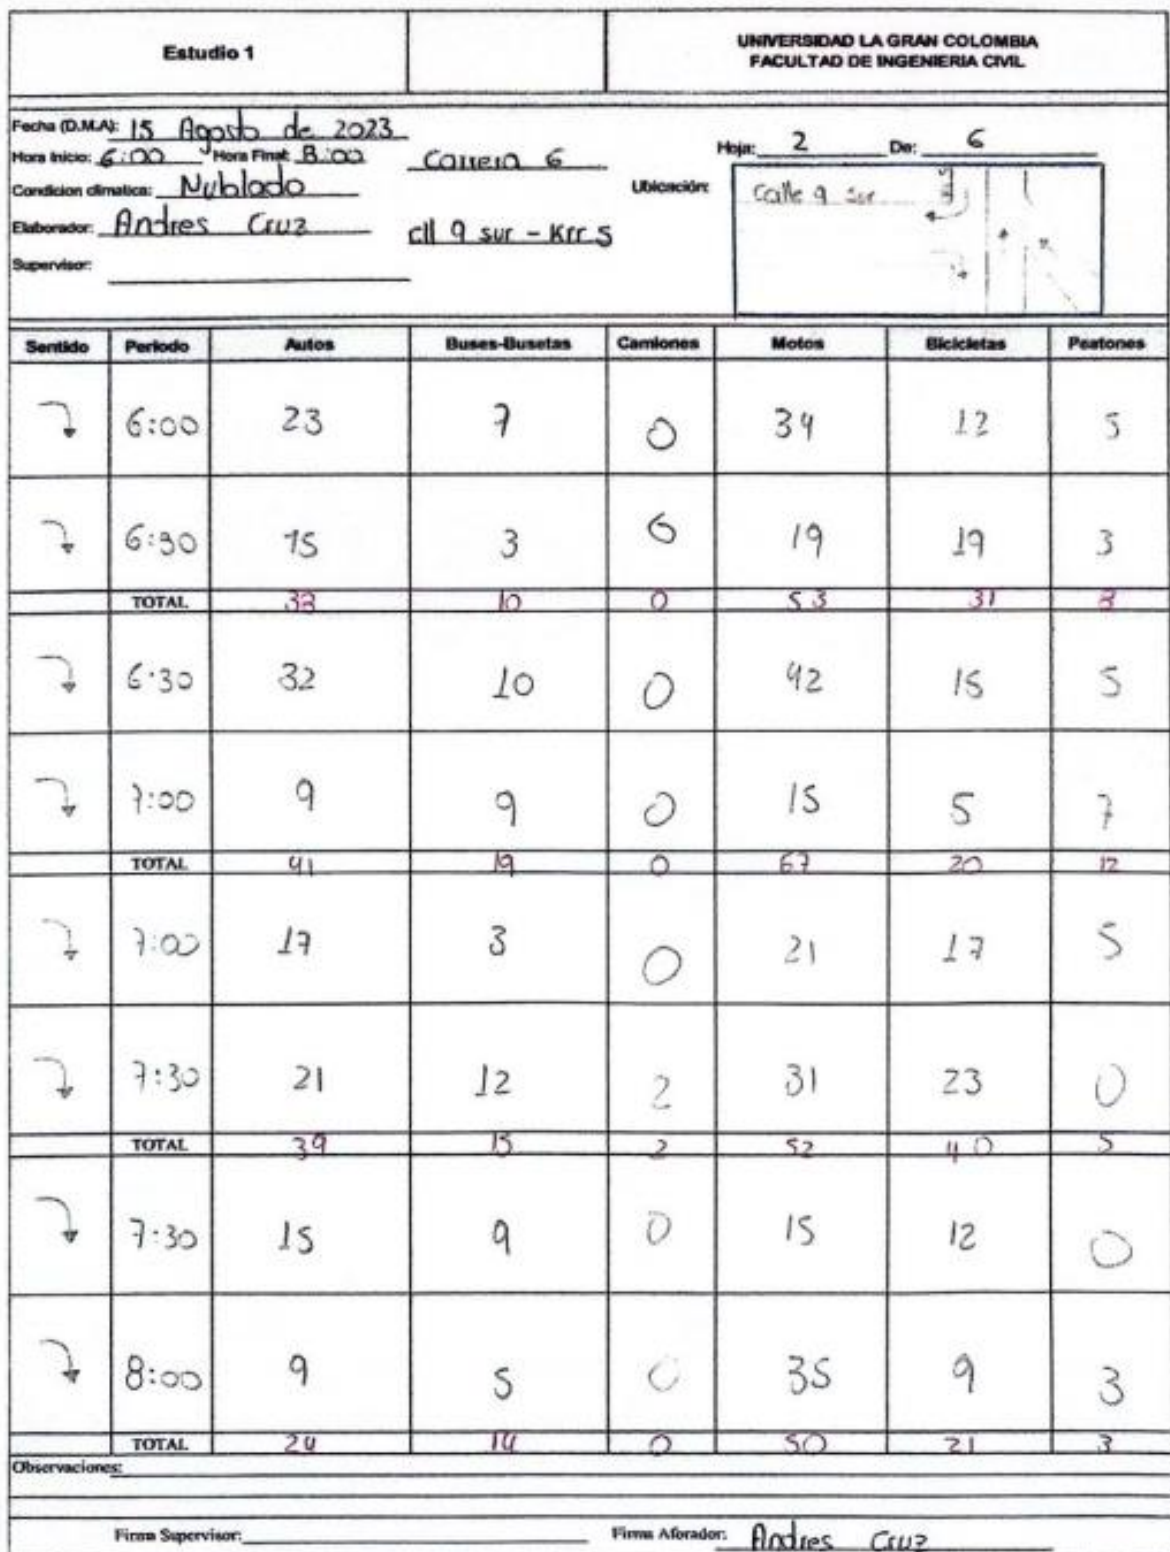 Estudio 1
UNIVERSIDAD LA GRAN COLOMBIA
FACULTAD DE INGENIERIA CIVIL
Fecha (D.M.A): 15 Agosto de 2023
Hora Inicio: 6:00 Hora Final: 8:00 Carrera 6
Hoja: 2 De: 6
Condicion climatica: Nublado
Ubicación: Calle 9 sur
Elaborador: Andres Cruz cll 9 sur - Krr 5
Supervisor:
Sentido Periodo Autos Buses-Busetas Camiones Motos Bicicletas Peatones
6:00 23 7 0 34 12 5
6:30 15 3 0 19 19 3
TOTAL 38 10 0 53 31 8
6:30 32 10 0 42 15 5
7:00 9 9 0 15 5 7
TOTAL 41 19 0 67 20 12
7:00 17 3 0 21 17 5
7:30 21 12 2 31 23 0
TOTAL 39 15 2 52 40 5
7:30 15 9 0 15 12 0
8:00 9 5 0 35 9 3
TOTAL 24 14 0 50 21 3
Observaciones:
Firma Supervisor: Firma Aforador: Andres Cruz